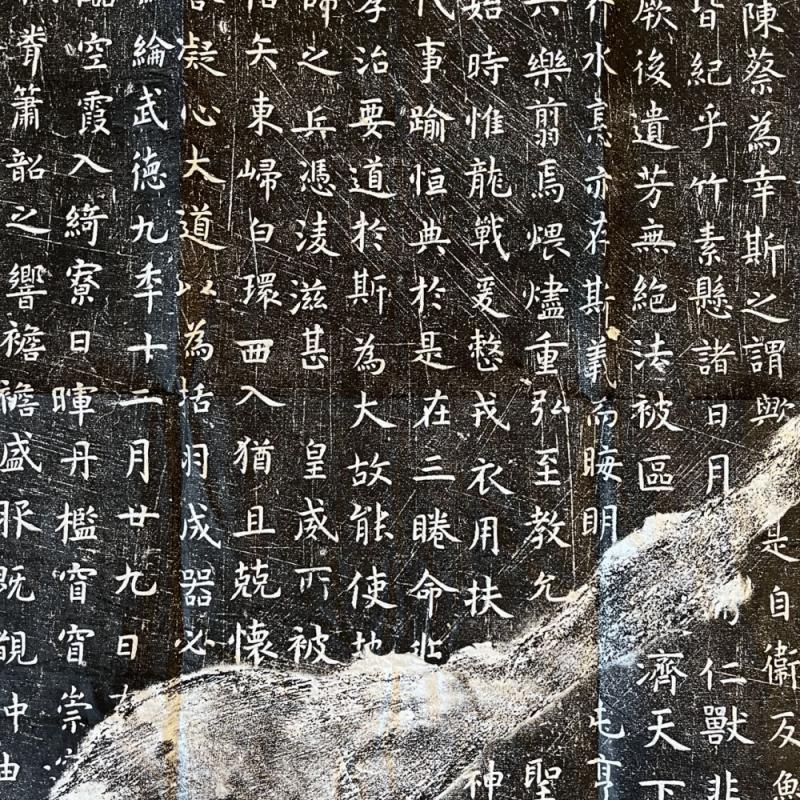 陳蔡為幸斯之謂歟 是自衛反魯
皆紀乎竹素懸諸日月 而仁獸非
厥後遺芳無絕法被區 濟天下
介水息亦存斯義而晦明 屯亨
六樂翦焉煨燼重弘至教允 聖
始時惟龍戰爰整戎衣用扶 神
代事踰恒典於是在三睠命
孝治要道於斯為大故能使地
師之兵憑淩滋甚 皇威所被
矢東歸白環西入猶且兢懷
凝心大道以為括羽成器必
綸武德九年十二月廿九日有
臨空霞入綺寮日暉丹檻窅窅崇
簫韶之響襜襜盛服既覩仲由